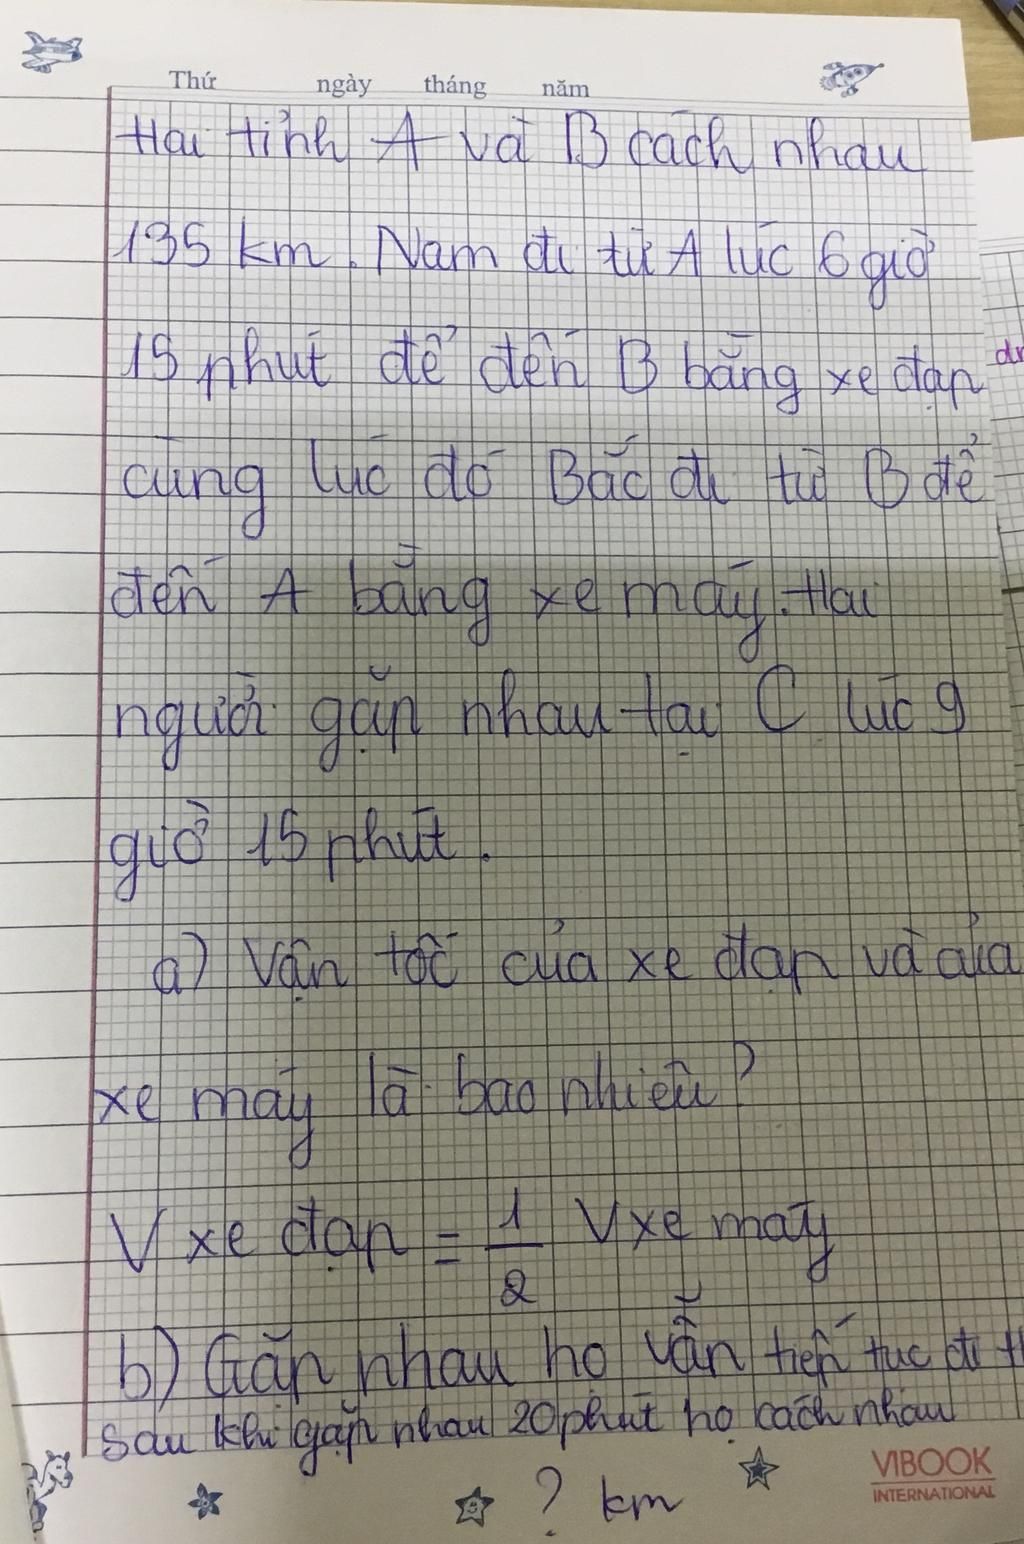 Thứ ngày tháng năm
Hai tỉnh A và B cách nhau
135 km. Nam đi từ A lúc 6 giờ
15 phút để đến B bằng xe đạp
cùng lúc đó Bắc đi từ B để
đến A bằng xe máy. Hai
người gặp nhau tại C lúc 9
giờ 15 phút.
a) Vận tốc của xe đạp và của
xe máy là bao nhiêu?
V xe đạp = 1/2 V xe máy
b) Gặp nhau họ vẫn tiếp tục đi
sau khi gặp nhau 20 phút họ cách nhau
? km
VIBOOK
INTERNATIONAL